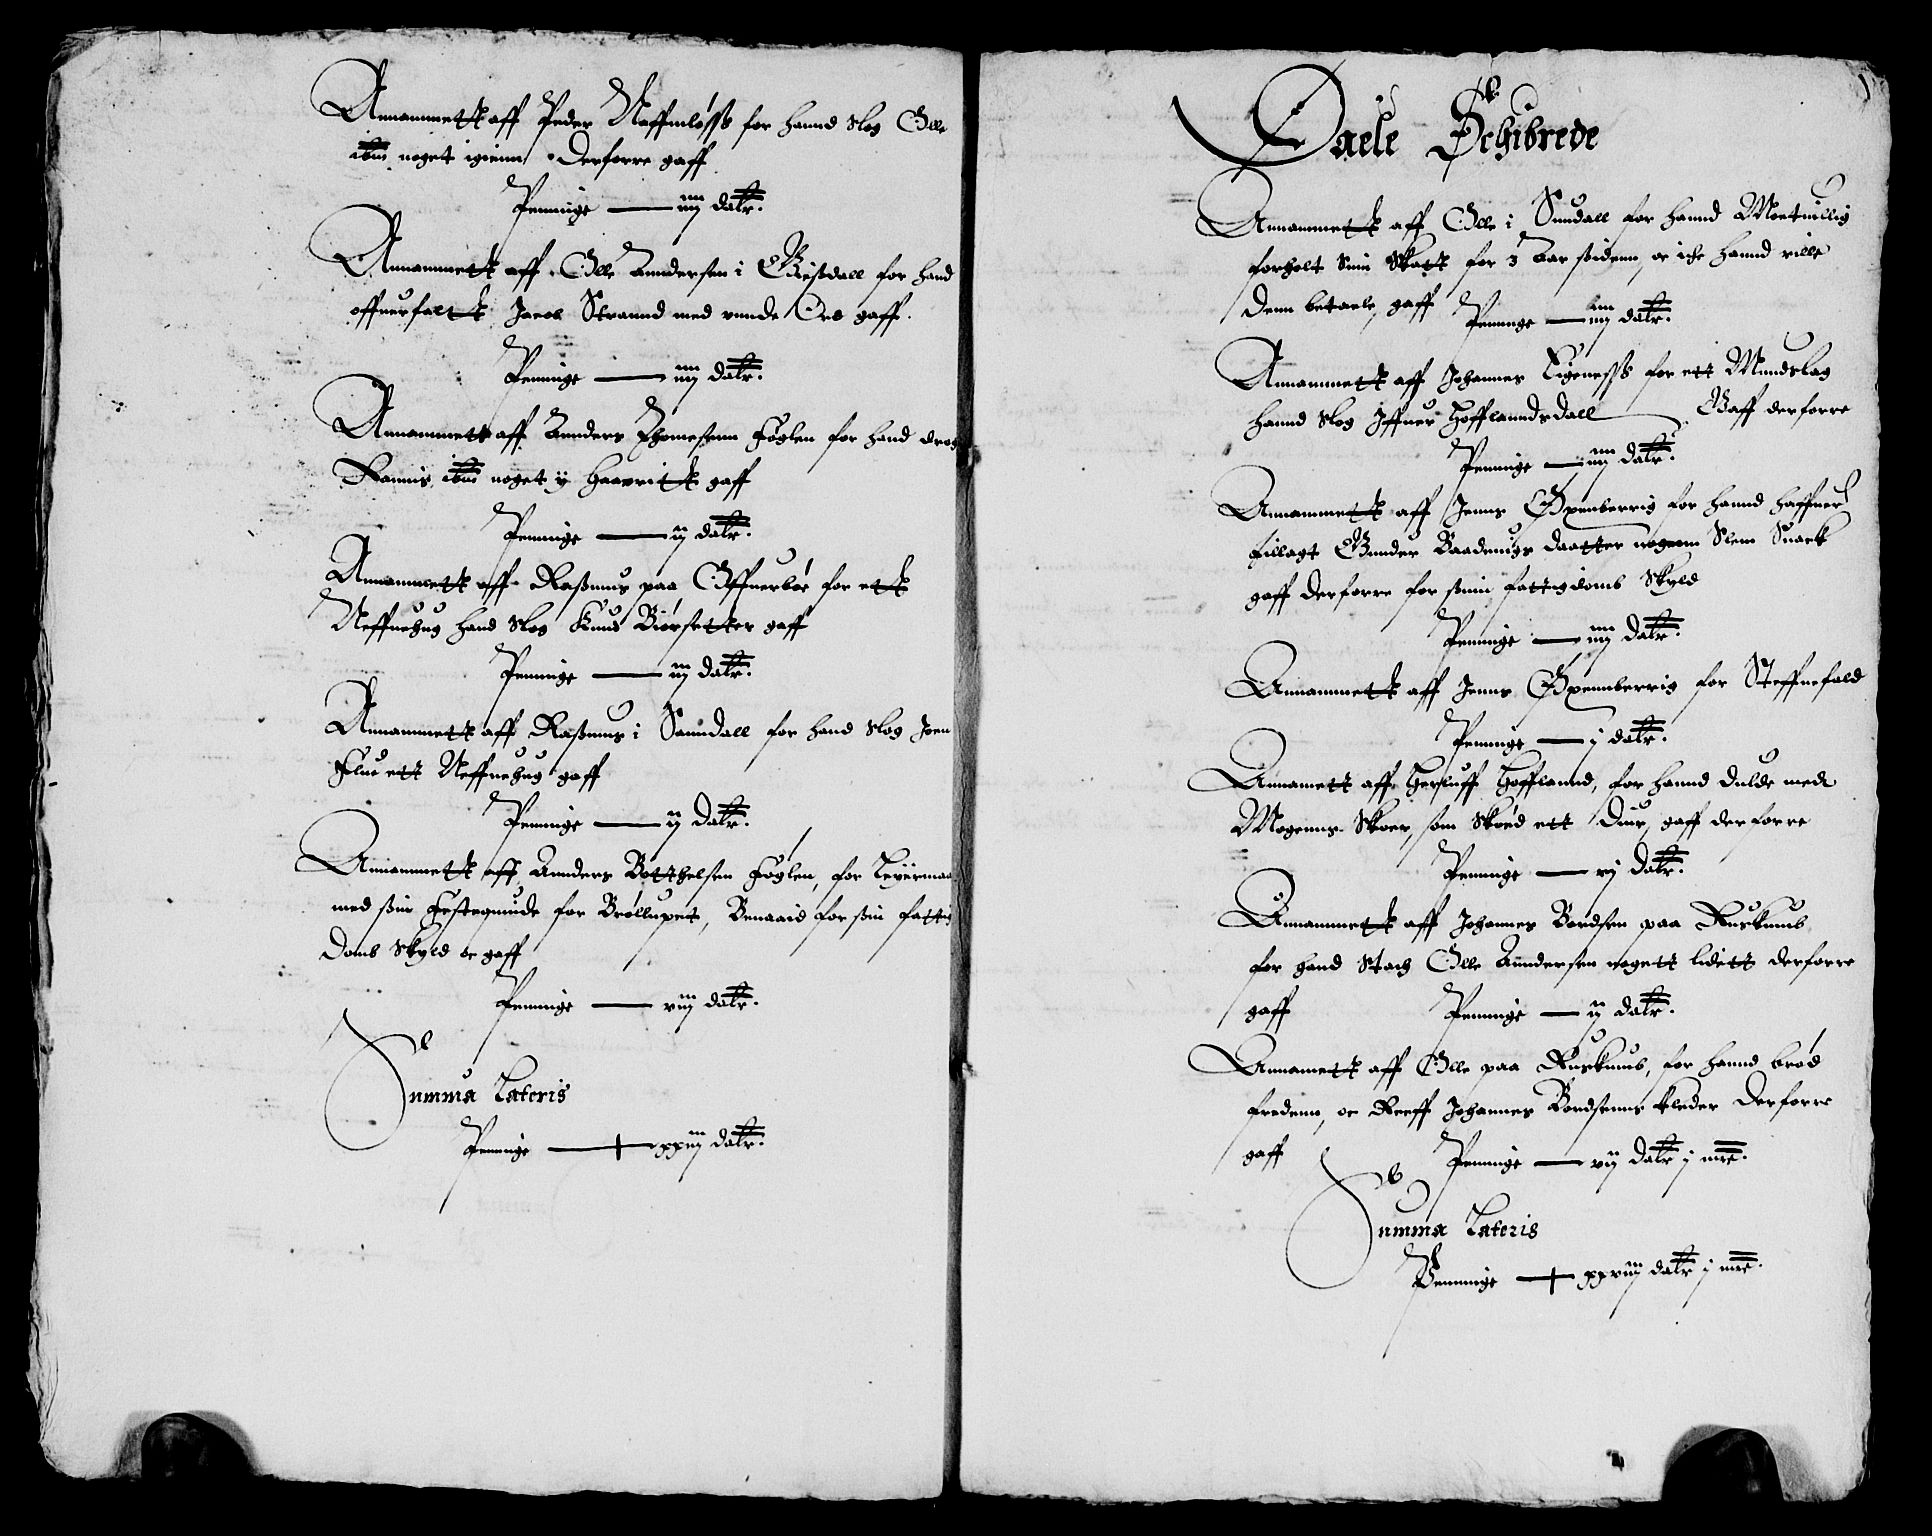 Annammett aff Peder Neffenløss for hannd slog Olle
ibm noget igienn. Derforre gaff
Penninge — iiij dalr.
Annammett aff Olle Anndersen i Gißdall for hand
offuerfaltt Jacob Strannd med vunde Ord gaff.
Penninge — iiij dalr.
Annammett aff Anders Thomesenn Føglen for hand drog
Rannis ibm noget y Haarritt gaff
Penninge — ij dalr.
Annammett aff Raßmus paa Offuerbøe for ett
Neffuehug hand slog Knud Biørsetter gaff
Penninge — iij dalr.
Annammett aff Raßmus i Sanndall for hand slog Joen
Flue ett Neffuehug gaff
Penninge — ij dalr.
Annammett aff Annders Botthelsen Føglen, for Leyermaa
med sin Festeqninde for Brøllupet, Benaaid for sin fattig
domb skyld oc gaff
Penninge — viij dalr.
Summa Lateris
Penninge — xxiij dalr.
Daele Schibrede
Annammett aff Olle i Sundall for hannd Moetuillig
forholt sin Skatt for 3 Aar sidenn, oc iche hannd ville
denn betaele, gaff Penninge — iiij dalr.
Annammett aff Johannes Eigeness for ett Mundslag
hannd slog Iffuer Hofflanndsdall Gaff derforre
Penninge — iiij dalr.
Annammett aff Jenns Øxenberrig for hannd haffuer
tillagt Gunder Baadnings daatter nogenn Slem Snack
gaff derforre for sinn fattigdomb skyld
Penninge — iiij dalr.
Annammett aff Jenns Øxennberrig for Steffnefald
Penninge — j dalr.
Annamett aff Herluff Hofflannd, for hannd dulde med
Mogenns Skoer, som skød ett Diur, gaff derforre
Penninge — vj dalr.
Annammett aff Johannes Bordsen paa Rusknub
for hand stach Olle Anndersen nogett lidett derforre
gaff Penninge — ij dalr.
Annamett aff Olle paa Rusknub, for hannd brød
fredenn, oc Reeff Johannes Bordsenns kleder derforre
gaff Penninge — vij dalr j mrc.
Summa Lateris
Penninge — xxviij dalr j mrc.